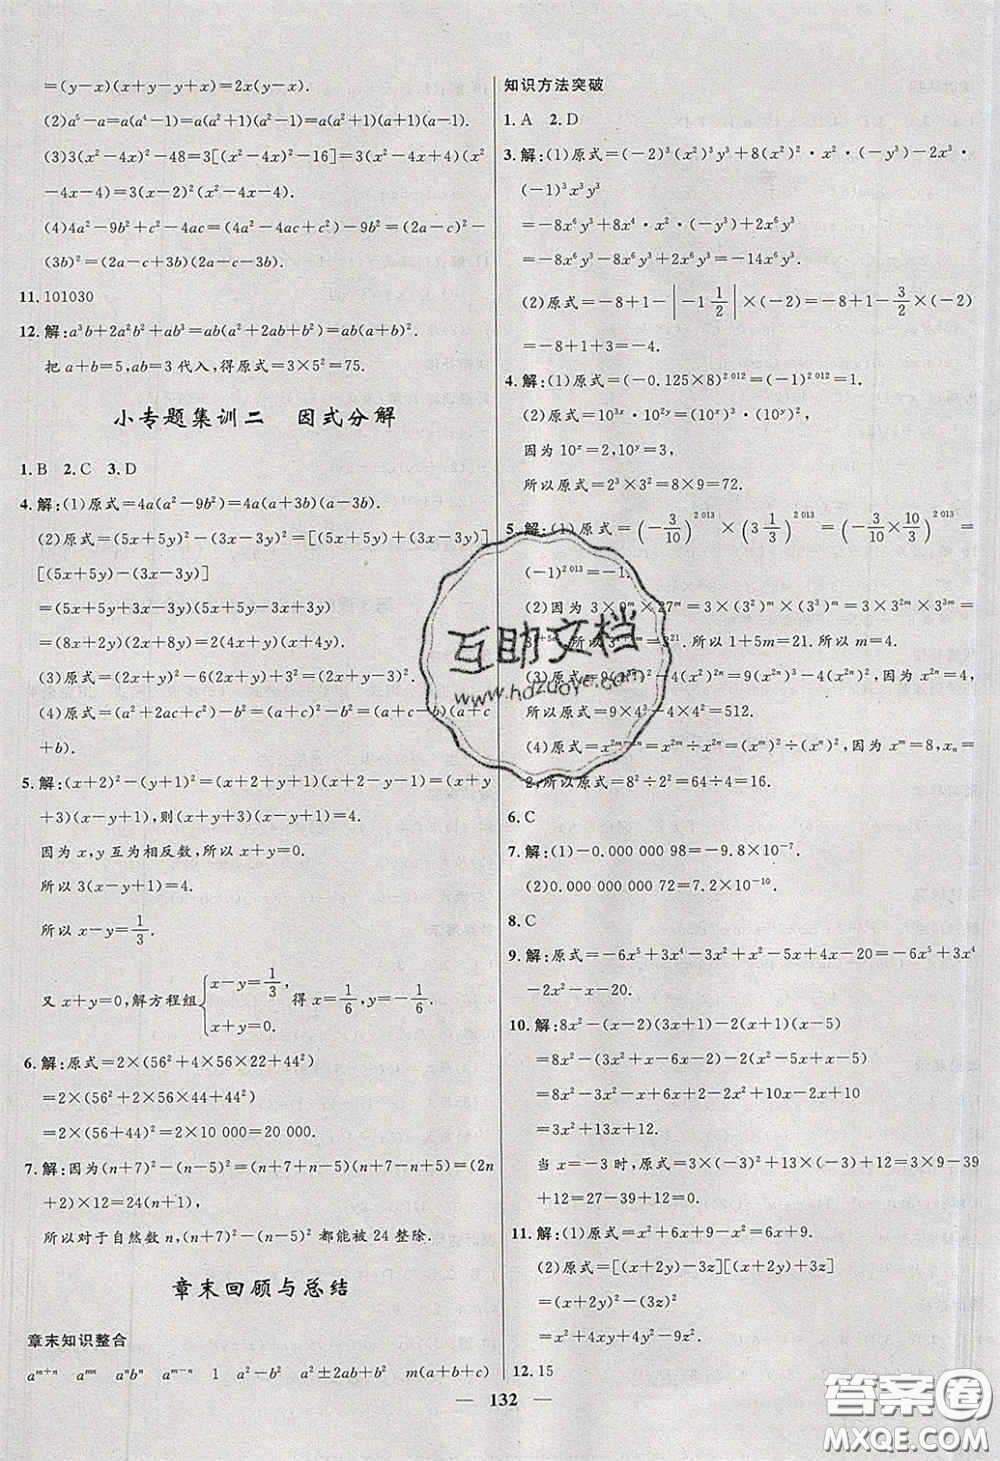 =(y-x)(x+y-y+x)=2x(y-x).
(2)a⁵-a=a(a⁴-1)=a(a²+1)(a²-1)=a(a²+1)(a+1)(a-1).
(3)3(x²-4x)²-48=3[(x²-4x)²-16]=3(x²-4x+4)(x²
-4x-4)=3(x-2)²(x²-4x-4).
(4)4a²-9b²+c²-4ac=(4a²-4ac+c²)-9b²=(2a-c)²-
(3b)²=(2a-c+3b)(2a-c-3b).
11.101030
12.解:a³b+2a²b²+ab³=ab(a²+2ab+b²)=ab(a+b)².
把a+b=5,ab=3代入,得原式=3×5²=75.
小专题集训二 因式分解
1.B 2.C 3.D
4.解:(1)原式=4a(a²-9b²)=4a(a+3b)(a-3b).
(2)原式=(5x+5y)²-(3x-3y)²=[(5x+5y)+(3x-3y)]
[(5x+5y)-(3x-3y)]
=(5x+5y+3x-3y)(5x+5y-3x+3y)
=(8x+2y)(2x+8y)=4(4x+y)(x+4y).
(3)原式=(2x+y)²-6(2x+y)+9=(2x+y-3)².
(4)原式=(a²+2ac+c²)-b²=(a+c)²-b²=(a+c-b)(a+c
+b).
5.解:(x+2)²-(y+1)²=(x+2+y+1)(x+2-y-1)=(x+y
+3)(x-y+1),则(x+y+3)(x-y+1)=4.
因为x,y互为相反数,所以x+y=0.
所以3(x-y+1)=4.
所以x-y=1/3.
又x+y=0,解方程组{x-y=1/3, x+y=0. 得x=1/6,y=-1/6.
6.解:原式=2×(56²+4×56×22+44²)
=2×(56²+2×56×44+44²)
=2×(56+44)²=2×10 000=20 000.
7.解:因为(n+7)²-(n-5)²=(n+7+n-5)(n+7-n+5)=(2n
+2)×12=24(n+1),
所以对于自然数n,(n+7)²-(n-5)²都能被24整除.
章末回顾与总结
章末知识整合
aᵐ⁺ⁿ aᵐⁿ aⁿbⁿ aᵐ⁻ⁿ 1 a²-b² a²±2ab+b² m(a+b+c)
知识方法突破
1.A 2.D
3.解:(1)原式=(-2)³(x²)³y³+8(x²)²·x²·(-y)³-2x³·
(-1)³x³y³
=-8x⁶y³+8x⁴·x²·(-y³)+2x⁶y³
=-8x⁶y³-8x⁶y³+2x⁶y³=-14x⁶y³.
(2)原式=-8+1-|-1 1/2|×(-2)=-8+1-3/2×(-2)
=-8+1+3=-4.
4.解:(1)原式=(-0.125×8)²⁰¹²=(-1)²⁰¹²=1.
(2)原式=10³ˣ·10²ʸ=(10ˣ)³·(10ʸ)².
因为10ˣ=2,10ʸ=3,
所以原式=2³×3²=8×9=72.
5.解:(1)原式=(-3/10)²⁰¹³×(3 1/3)²⁰¹³=(-3/10×10/3)²⁰¹³=
(-1)²⁰¹³=-1.
(2)因为3×9ᵐ×27ᵐ=3×(3²)ᵐ×(3³)ᵐ=3×3²ᵐ×
3³ᵐ=3¹⁺⁵ᵐ=3²¹.所以1+5m=21.所以m=4.
所以原式=9×4³-4×4²=512.
所以原式=8²÷2²=64÷4=16.
6.C
7.解:(1)-0.000 000 98=-9.8×10⁻⁷.
(2)0.000 000 000 72=7.2×10⁻¹⁰.
8.C
9.解:原式=-6x⁵+3x⁴-3x²+x²-5x+4x-20=-6x⁵+3x⁴
-2x²-x-20.
10.解:8x²-(x-2)(3x+1)-2(x+1)(x-5)
=8x²-(3x²-5x-2)-2(x²-4x-5)
=8x²-3x²+5x+2-2x²+8x+10
=3x²+13x+12.
当x=-3时,原式=3×(-3)²+13×(-3)+12=3×9-39
+12=27-39+12=0.
11.解:(1)原式=x²+6x+9-x²=6x+9.
(2)原式=[(x+2y)-3z][(x+2y)+3z]
=(x+2y)²-(3z)²
=x²+4xy+4y²-9z².
12.15
132
互助文档
www.hdzuoye.com
答案圈
MXQE.COM